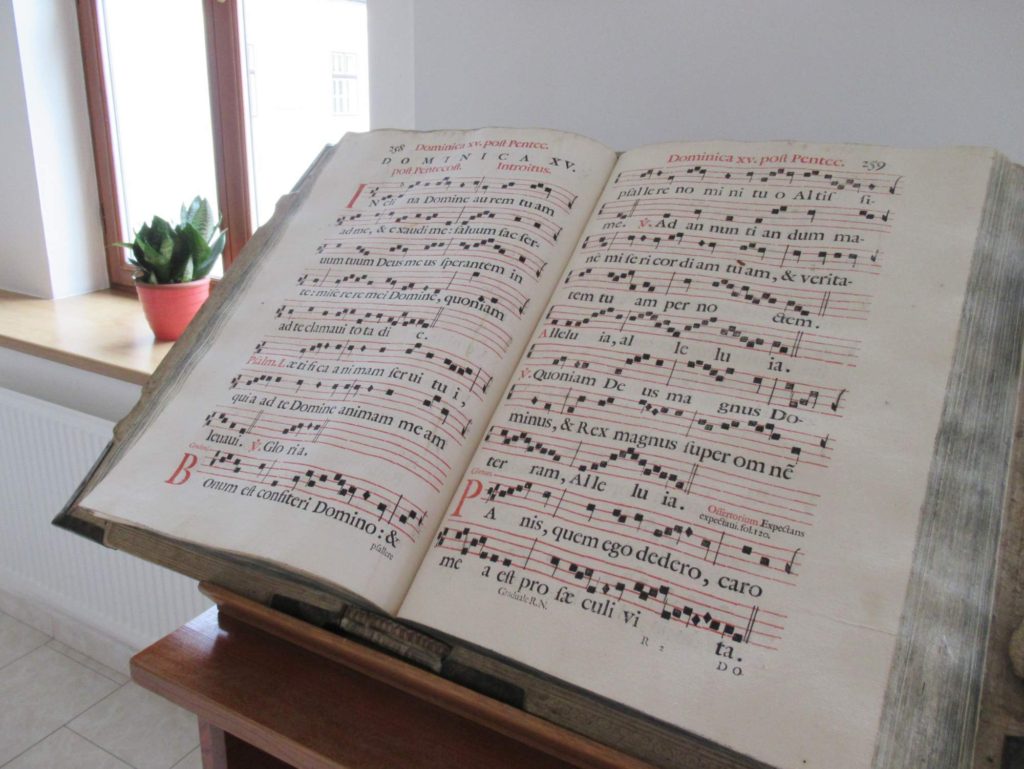 258 Dominica xv. post Pentec.
DOMINICA XV.
post Pentecost. Introitus.
IN cli na Domine au rem tu am
ad me, & exaudi me: saluum fac ser-
uum tuum Deus me us sperantem in
te: mise re re mei Domine, quoniam
ad te clamaui to ta di e.
Psalm. Læ ti fi ca a ni mam ser ui tu i,
quia ad te Domine animam me am
leuaui. ℣. Glo ri a.
Graduale
BOnum est confiteri Domino: &
psallere
Dominica xv. post Pentec. 259
psal le re no mi ni tu o Al tis si-
me. ℣. Ad an nun ti an dum ma-
nè mi se ri cor di am tu am, & verita-
tem tu am per no ctem.
Allelu ia, al le lu ia.
℣. Quoniam De us ma gnus Do-
minus, & Rex magnus super om nẽ
ter ram, Al le lu ia.
Offertorium. Expectans
expectaui. fol. 120.
PA nis, quem ego dedero, caro
me a est pro sæ culi vi ta.
Graduale R.N.
R 2 DO